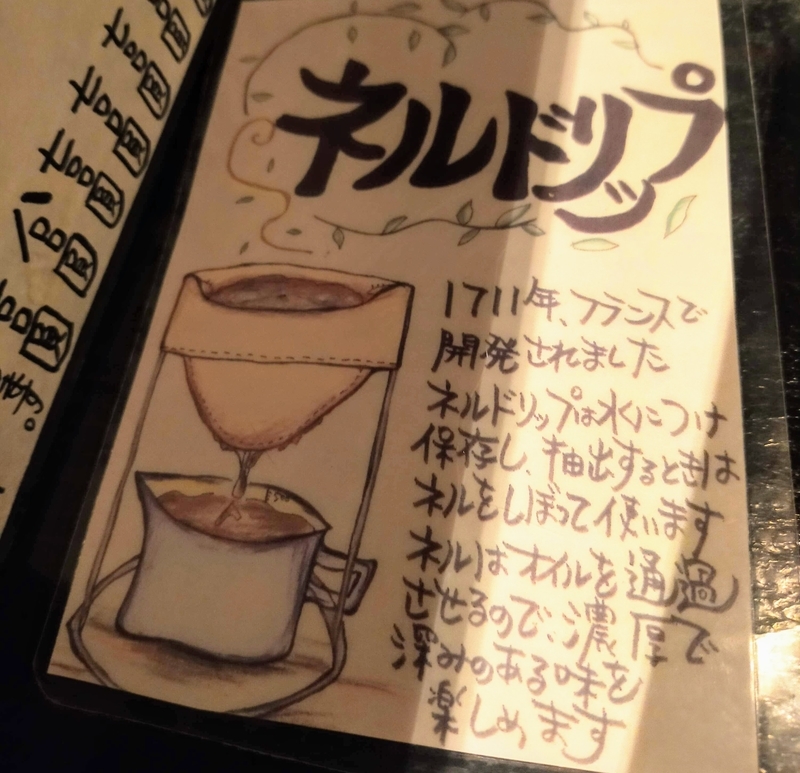 ネルドリップ
1711年、フランスで
開発されました
ネルドリップは水につけ
保存し、抽出するときは
ネルをしぼって使います
ネルはオイルを通過
させるので、濃厚で
深みのある味を
楽しめます
ます。